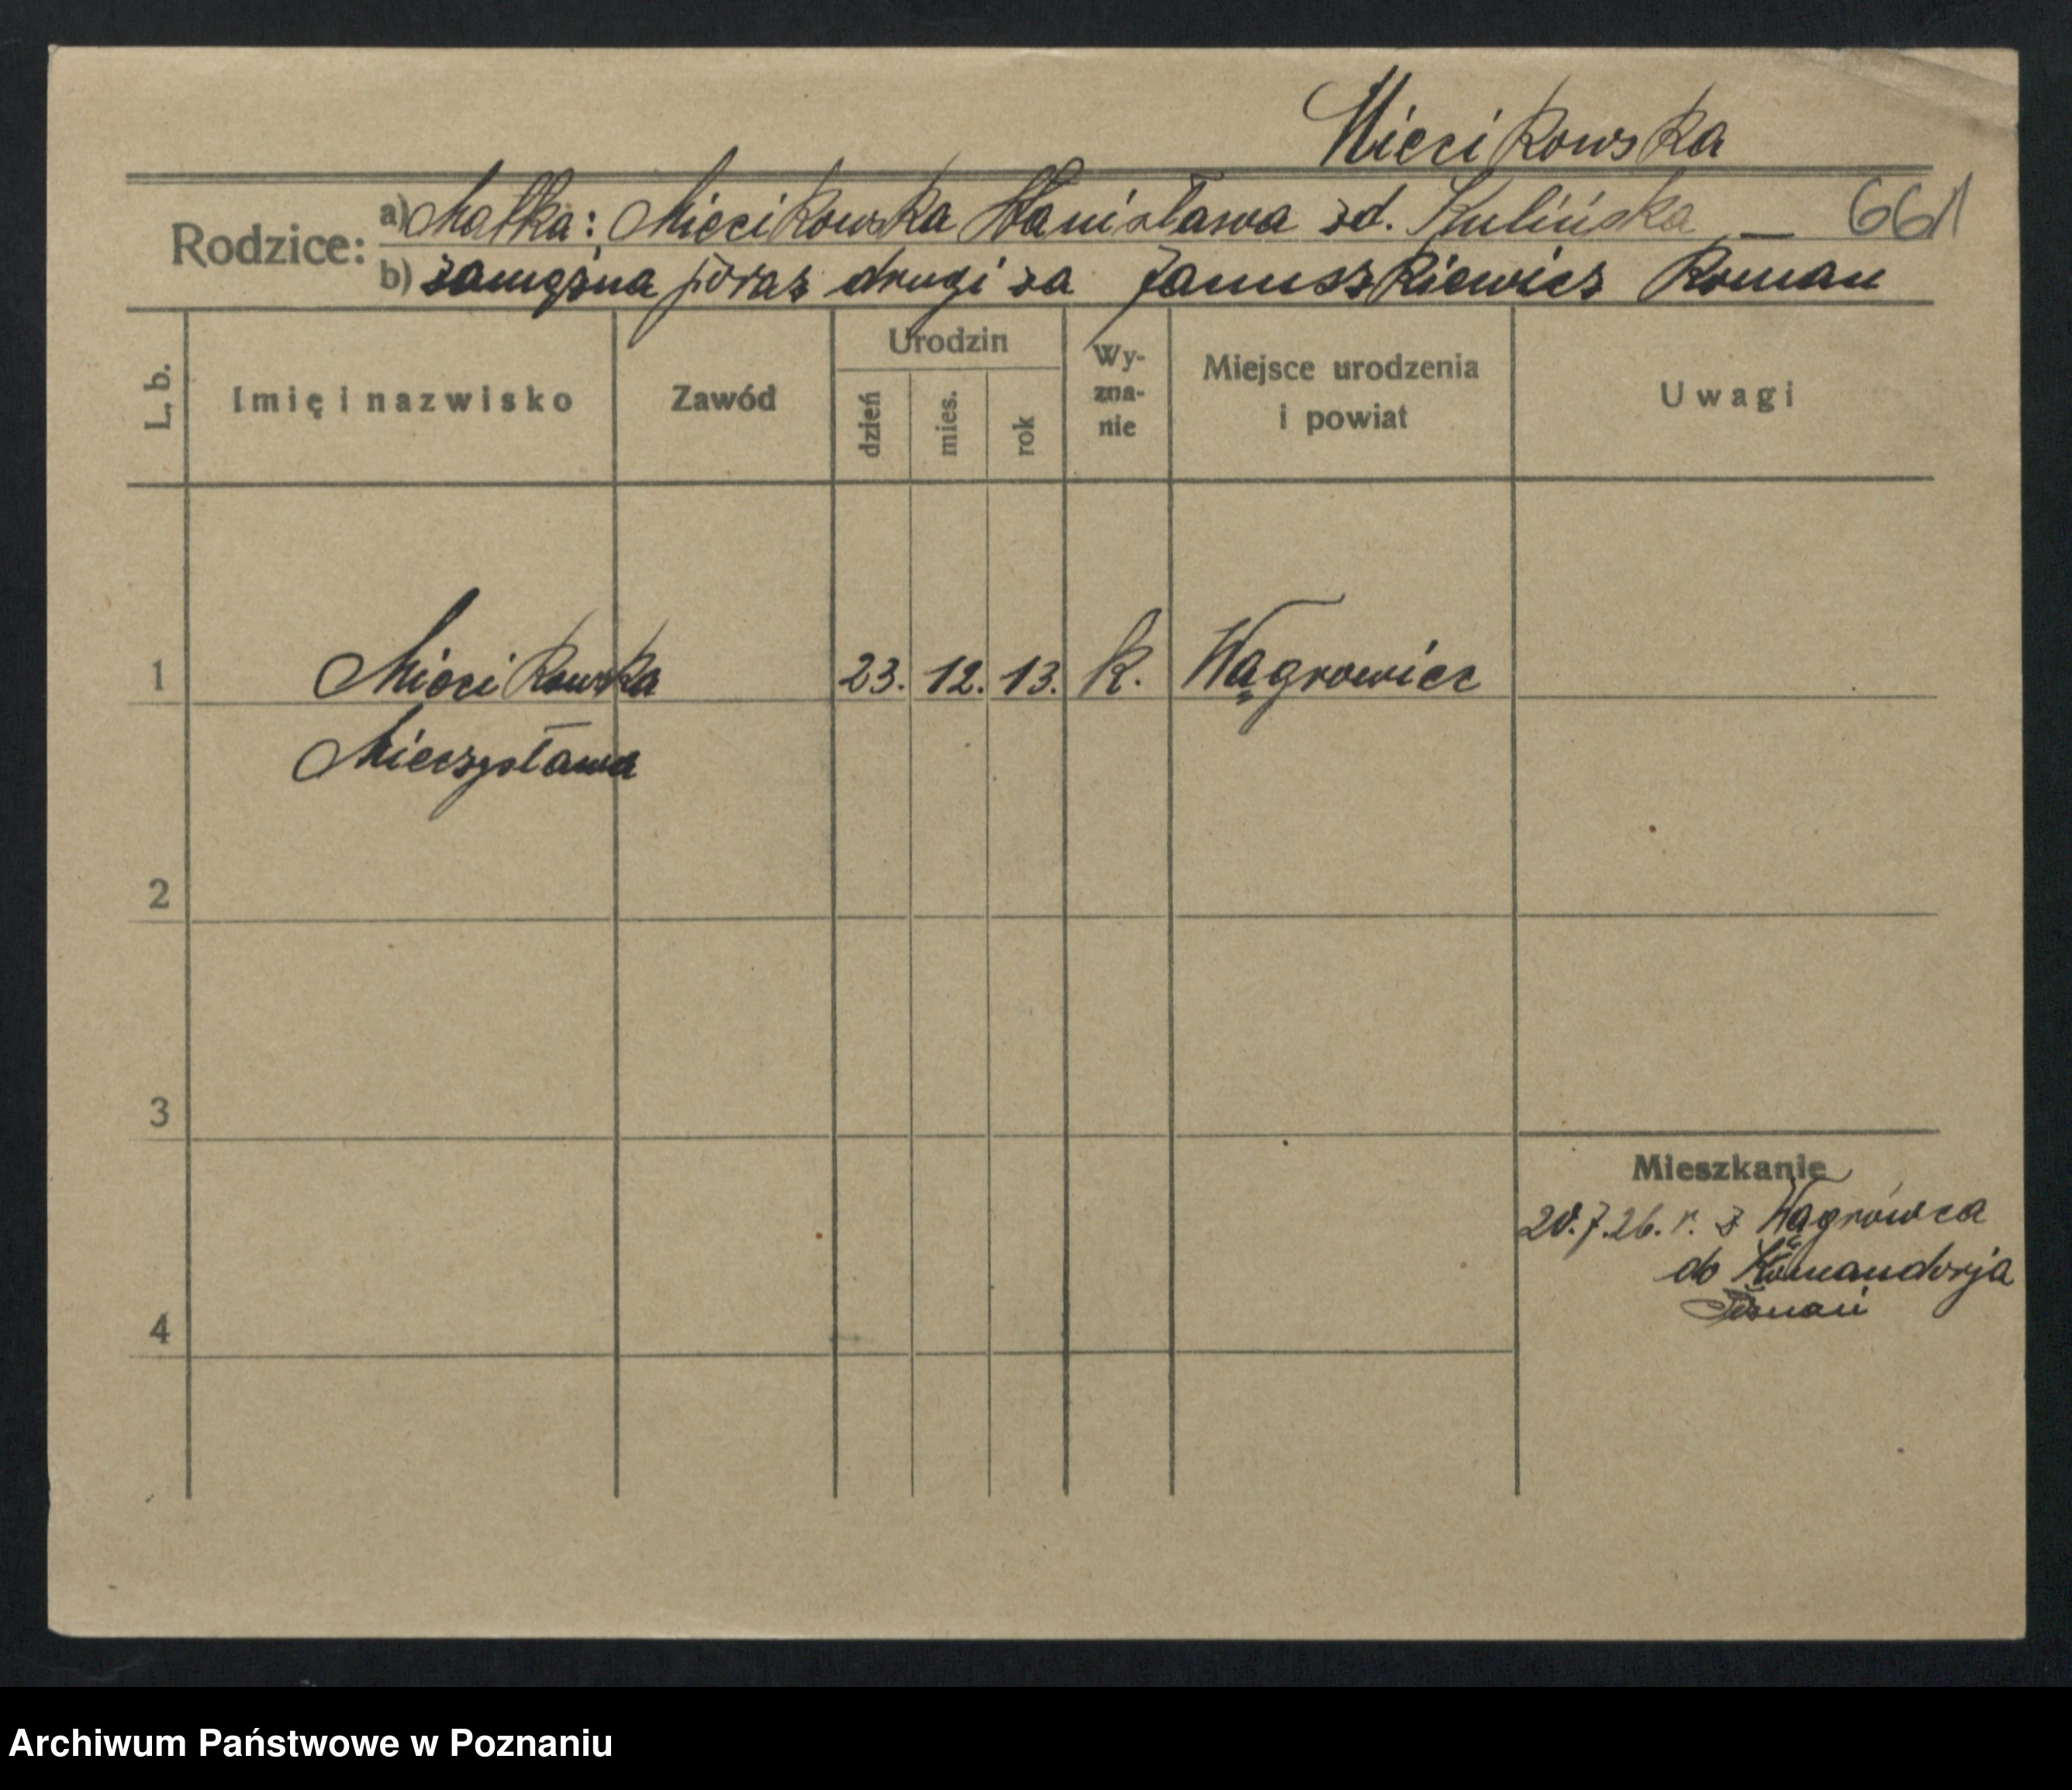 Miecikowska
Rodzice: a) Matka: Miecikowska Stanisława zd. Kulińska — 661
b) zamężna poraz drugi za Januszkiewicz Roman
L. b. Imię i nazwisko Zawód Urodzin dzień mies. rok Wy-zna-nie Miejsce urodzenia i powiat Uwagi
1 Miecikowska 23. 12. 13. k. Wągrowiec
Mieczysława
2
3
Mieszkanie
20.7.26. r. z Wągrówca
do Komandorja
Poznań
4
Archiwum Państwowe w Poznaniu